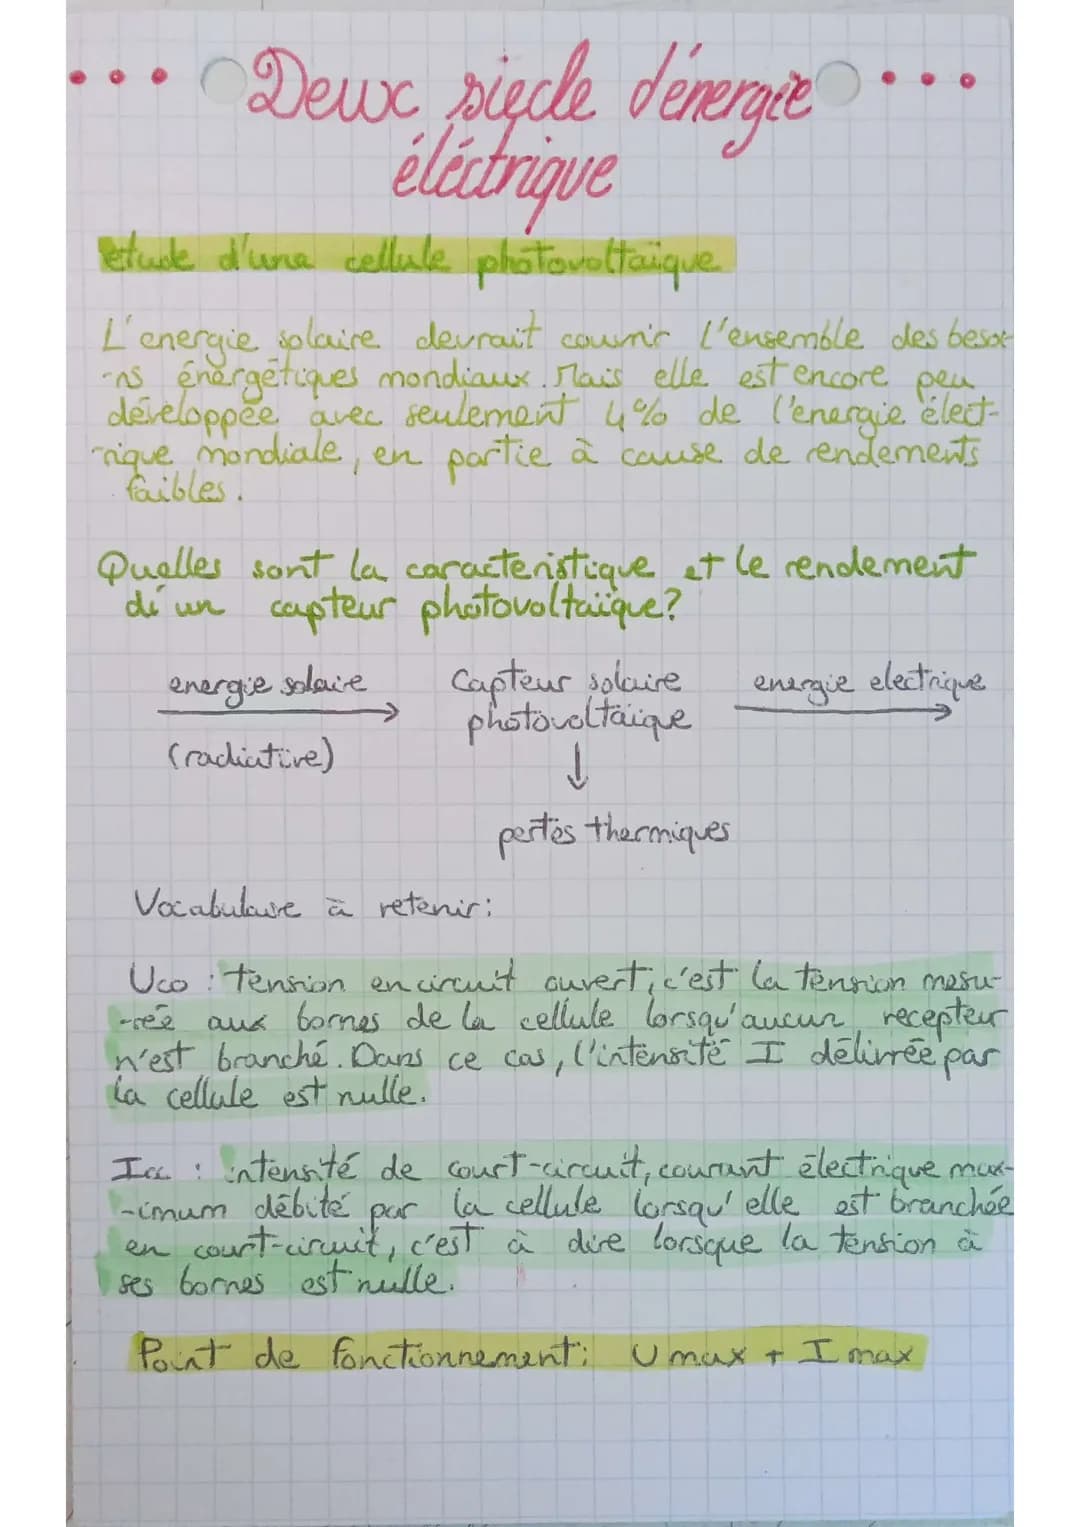 Deux siecle d'énergie
éléctrique
étude d'une cellule photovoltaïque
L'energie solaire devrait couvrir l'ensemble des besoi-
-ns énérgétiques mondiaux. Mais elle est encore peu
développée avec seulement 4% de l'energie élect-
-rique mondiale, en partie à cause de rendements
faibles.
Quelles sont la caracteristique et le rendement
d'un capteur photovoltaïque?
energie solaire Capteur solaire energie electrique
(radiative) photovoltaïque
pertes thermiques
Vocabulaire à retenir:
Uco : tension en circuit ouvert; c'est la tension mesu-
-rée aux bornes de la cellule lorsqu'aucun recepteur
n'est branché. Dans ce cas, l'intensité I délivrée par
la cellule est nulle.
Icc : intensité de court-circuit, courant électrique max-
-imum débité par la cellule lorsqu'elle est branchée
en court-circuit, c'est à dire lorsque la tension à
ses bornes est nulle.
Point de fonctionnement: U max + I max